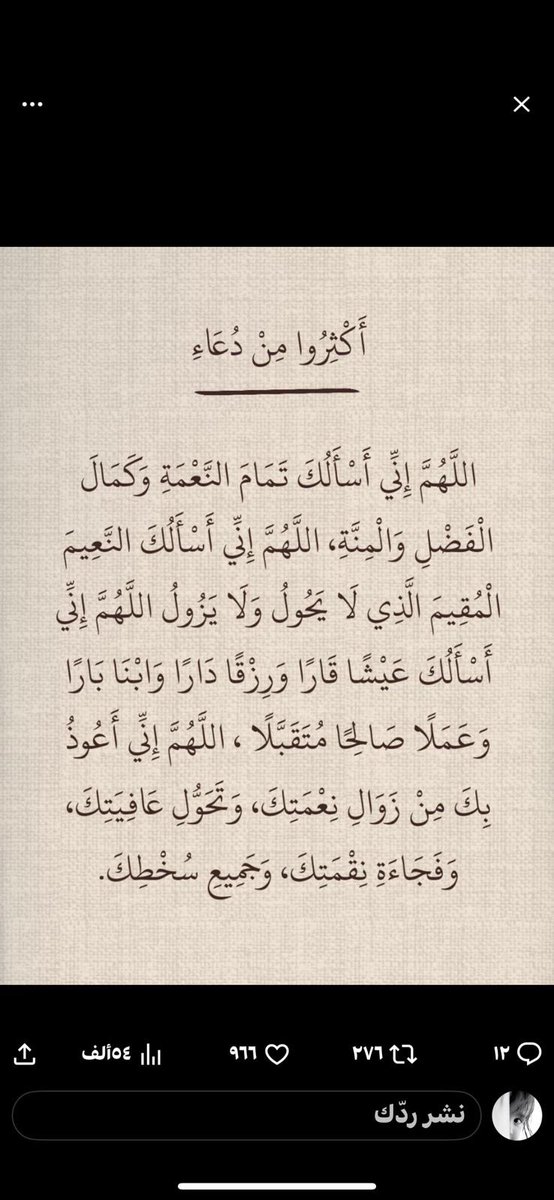 أَكْثِرُوا مِنْ دُعَاءِ
اللَّهُمَّ إِنِّي أَسْأَلُكَ تَمَامَ النَّعْمَةِ وَكَمَالَ
الْفَضْلِ وَالْمِنَّةِ، اللَّهُمَّ إِنِّي أَسْأَلُكَ النَّعِيمَ
الْمُقِيمَ الَّذِي لَا يَحُولُ وَلَا يَزُولُ اللَّهُمَّ إِنِّي
أَسْأَلُكَ عَيْشًا قَارًا وَرِزْقًا دَارًا وَابْنَا بَارًا
وَعَمَلًا صَالِحًا مُتَقَبَّلًا ، اللَّهُمَّ إِنِّي أَعُوذُ
بِكَ مِنْ زَوَالِ نِعْمَتِكَ، وَتَحَوُّلِ عَافِيَتِكَ،
وَفَجَاءَةِ نِقْمَتِكَ، وَجَمِيعِ سُخْطِكَ.
١٢ ٢٧٦ ٩٦٦ ٥٤ألف
نشر ردّك